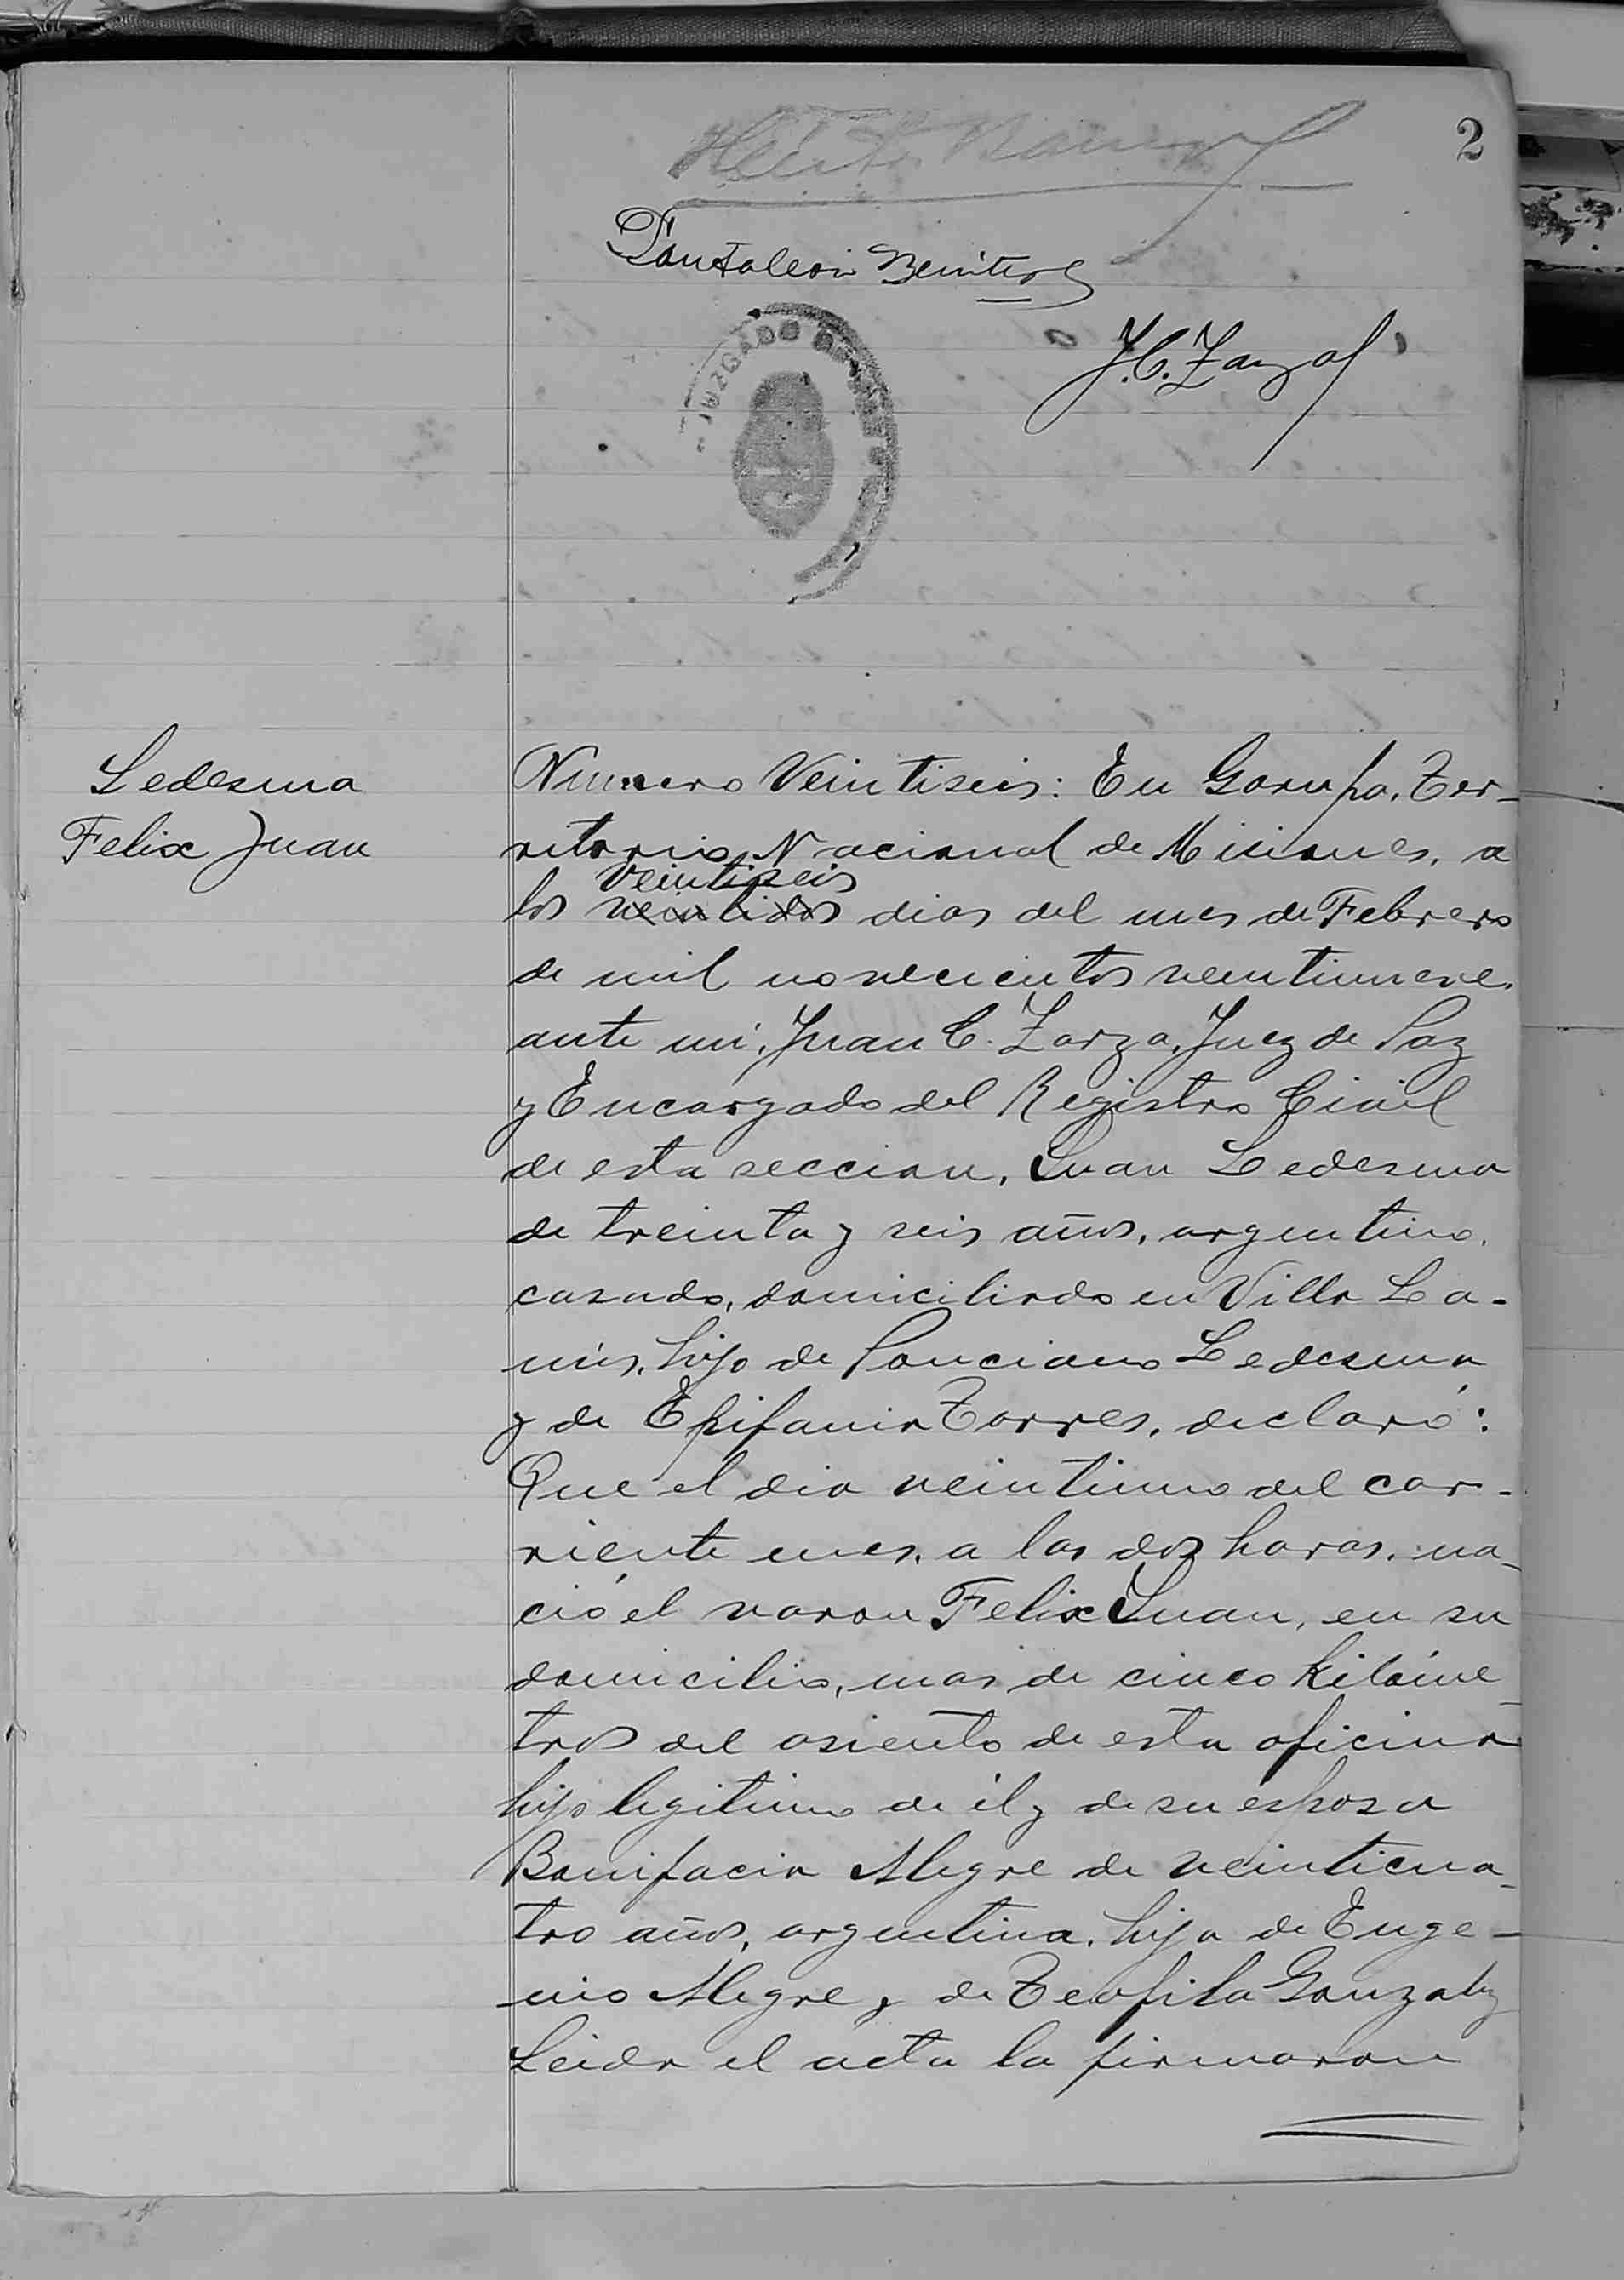 2
Pantaleon Benitez
JUZGADO DE PAZ
J. C. Zarza
Ledesma
Felix Juan
Numero Veintiseis: En Garupa, Ter-
ritorio Nacional de Misiones, a
veintiseis
los veintidos dias del mes de Febrero
de mil novecientos veintinueve,
ante mi, Juan C. Zarza, Juez de Paz
y Encargado del Registro Civil
de esta seccion, Juan Ledesma
de treinta y seis años, argentino,
casado, domiciliado en Villa La-
nús, hijo de Ponciano Ledesma
y de Epifania Torres, declaró:
Que el dia veintiuno del cor-
riente mes, a las dos horas, na-
ció el varon Felix Juan, en su
domicilio, mas de cinco Kilóme-
tros del asiento de esta oficina
hijo legitimo de él y de su esposa
Bonifacia Alegre de veinticua-
tro años, argentina, hija de Euge-
nio Alegre y de Teofila Gonzalez
Leida el acta la firmaron